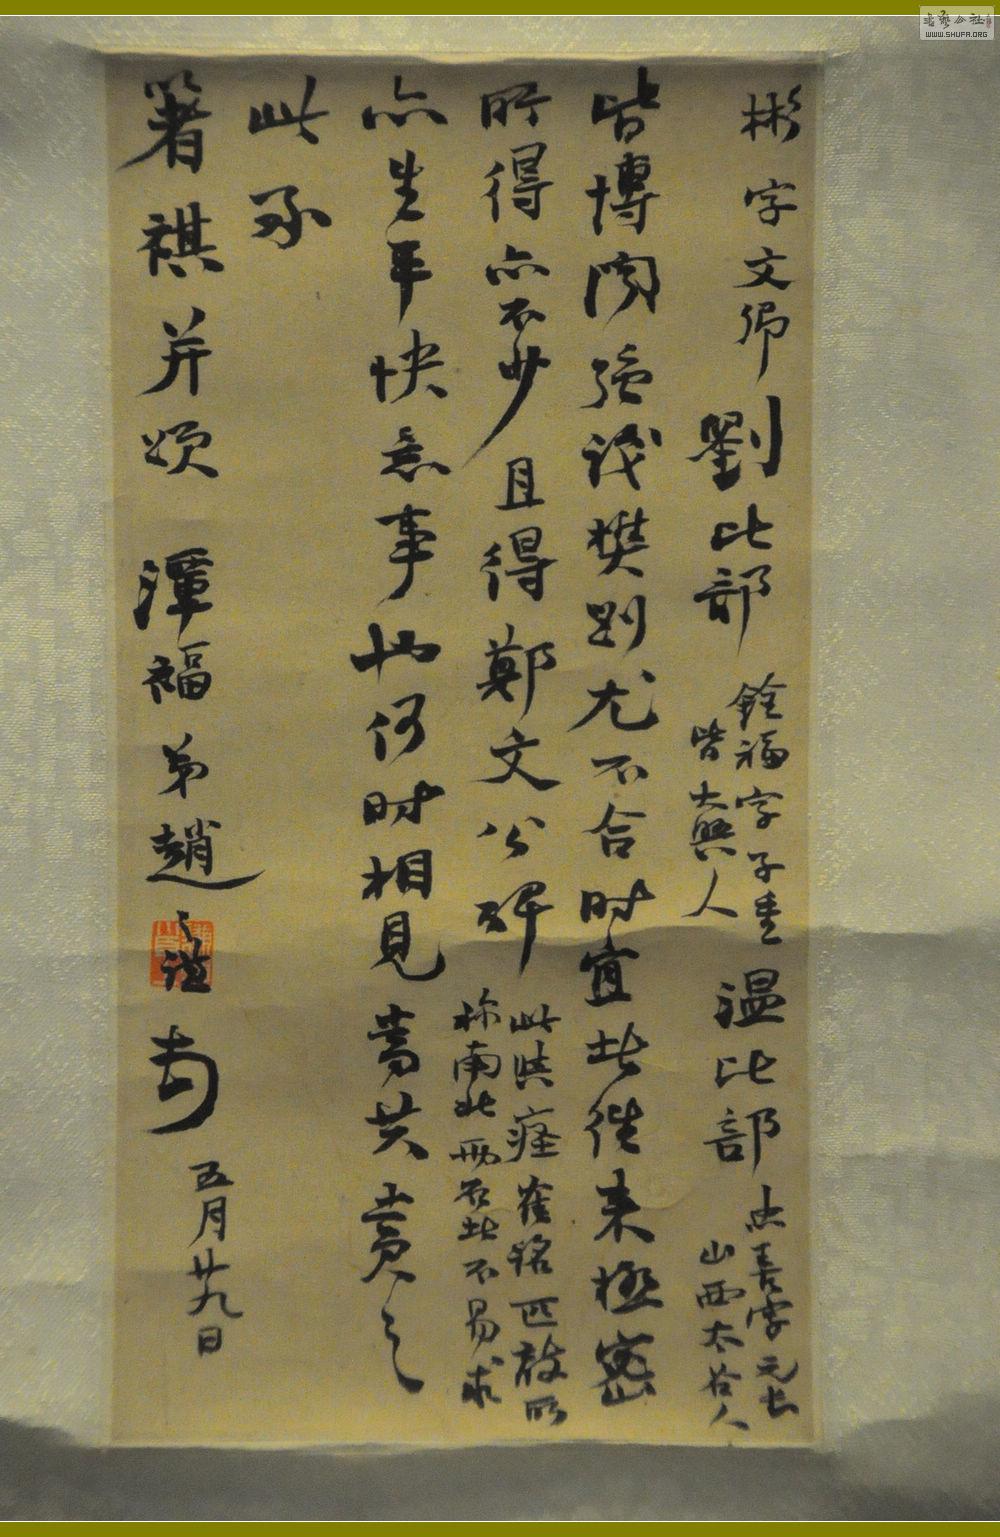 彬字文卿劉比部銓福字子重皆大興人溫比部忠善字元長山西太谷人
皆博聞強識樊則尤不合時宜此後來極密
所得亦不少且得鄭文公碑此與瘞雀銘匹敵所稱南北兩石此不易求
亦生平快意事也何時相見當共賞之
此承
著祺并頌潭福弟趙之謙頓首
五月廿九日
WWW.SHUFA.ORG